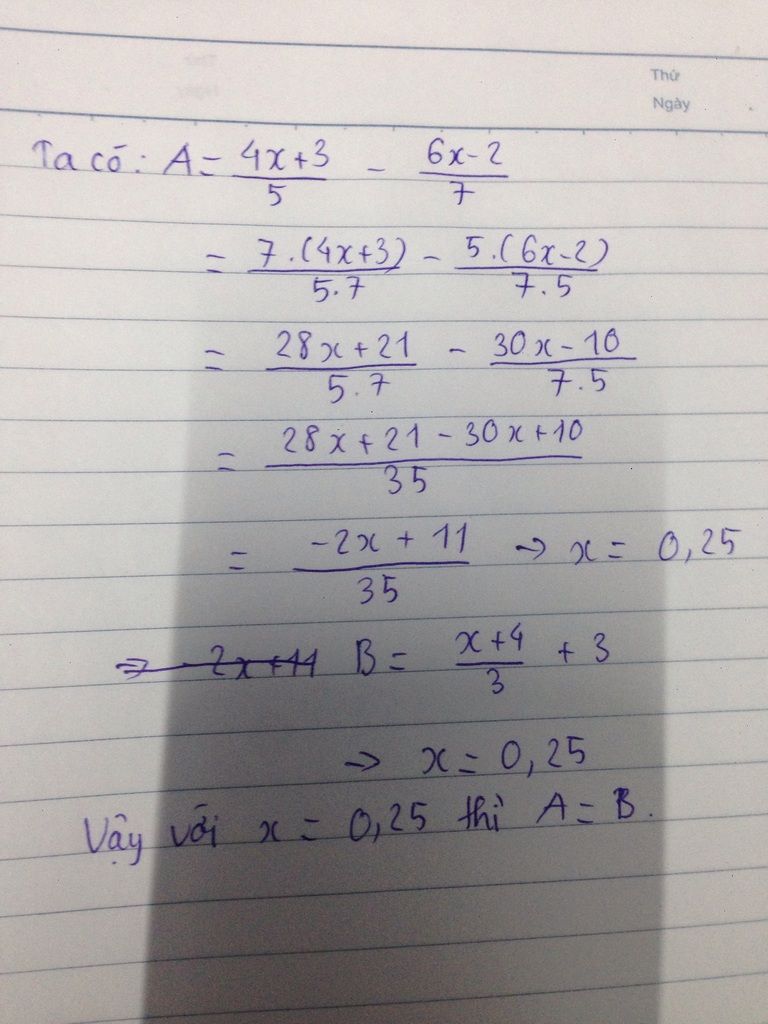 Thứ
Ngày
Ta có: A = \frac{4x+3}{5} - \frac{6x-2}{7}
= \frac{7.(4x+3)}{5.7} - \frac{5.(6x-2)}{7.5}
= \frac{28x+21}{5.7} - \frac{30x-10}{7.5}
= \frac{28x+21-30x+10}{35}
= \frac{-2x+11}{35} → x = 0,25
⇒ ~~-2x+11~~ B = \frac{x+4}{3} + 3
→ x = 0,25
Vậy với x = 0,25 thì A = B.